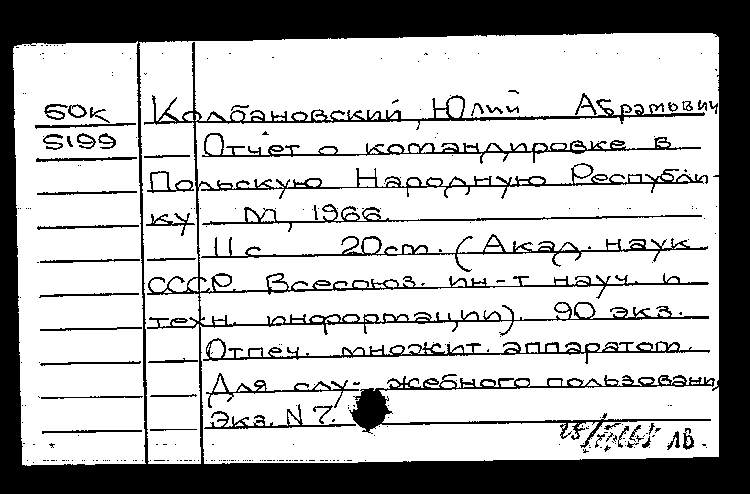 БОК Колбановский, Юлий Абрамович
S199 Отчет о командировке в
Польскую Народную Республи-
ку. М., 1966.
11 с. 20 см. (Акад. наук
СССР. Всесоюз. ин-т науч. и
техн. информации). 90 экз.
Отпеч. множит. аппаратом.
Для слу- жебного пользовани
Экз. N 7.
ЛВ.